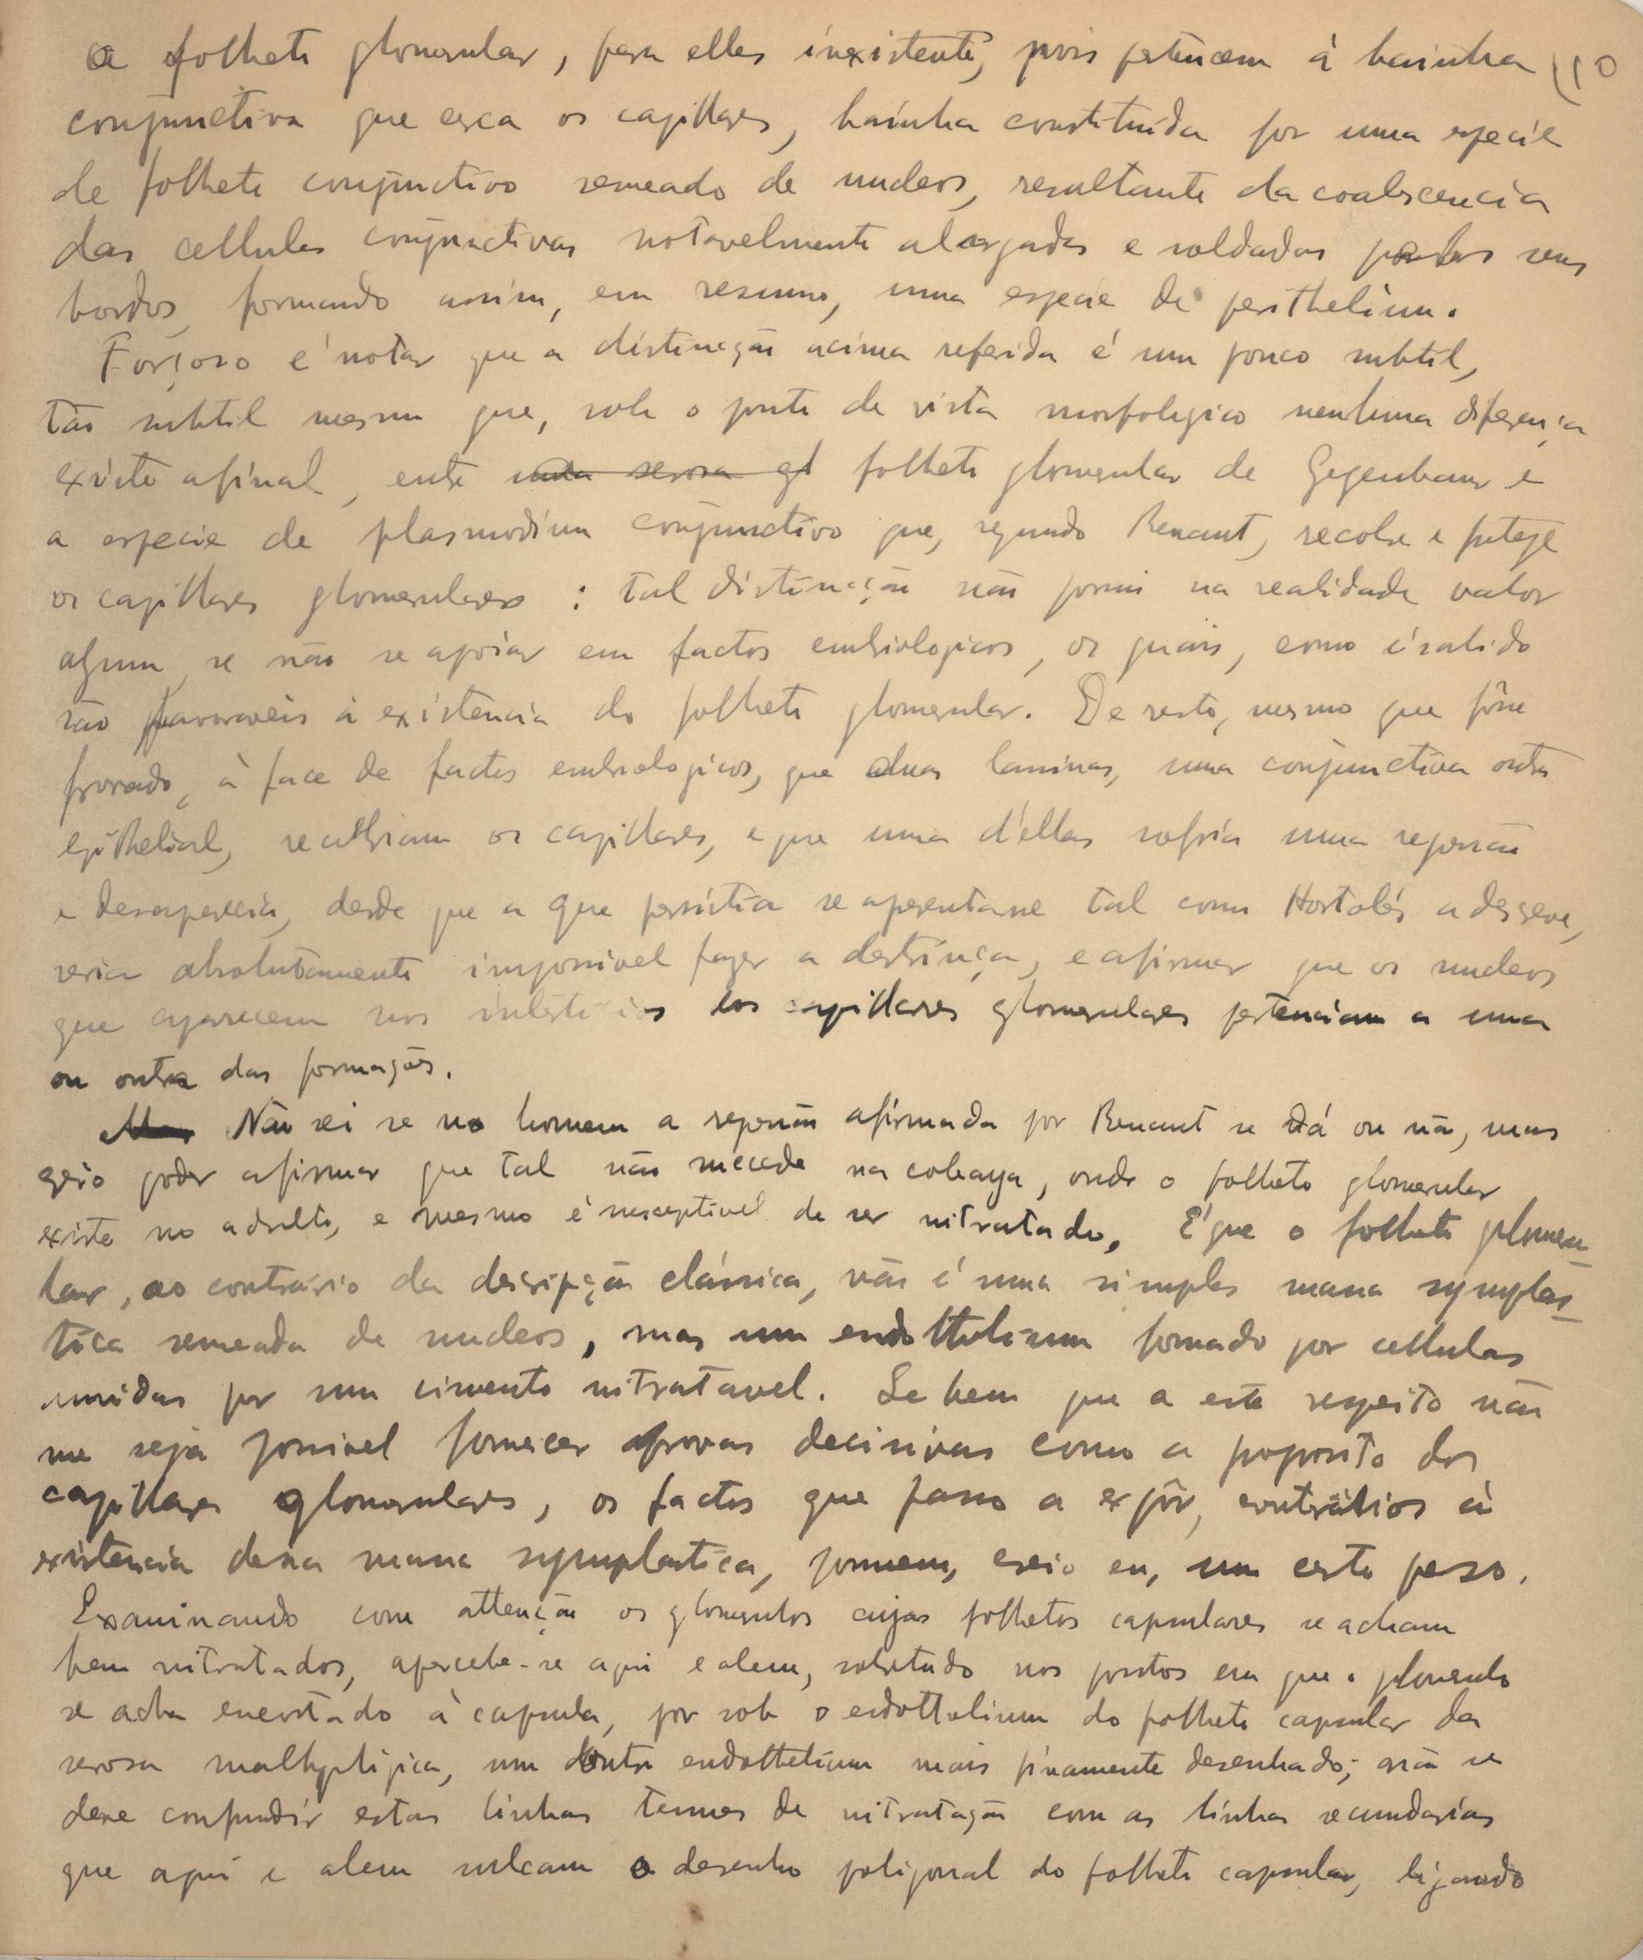 a folheto glomerular, para elles inexistente, pois pertencem á bainha 10
conjunctiva que cerca os capillares, bainha constituida por uma especie
de folheto conjunctivo semeado de nucleos, resultante da coalescencia
das cellulas conjunctivas notavelmente alargadas e soldadas pelos seus
bordos, formando assim, em resumo, uma especie de perithelium.
Forçoso é notar que a distincção acima referida é um pouco subtil,
tão subtil mesmo que, sob o ponto de vista morfologico nenhuma diferença
existe afinal, entre uma serosa gl folheto glomerular de Gegenbaur e
a especie de plasmodium conjunctivo que, segundo Renaut, recobre e protege
os capillares glomerulares : tal distincção não possui na realidade valor
algum, se não se apoiar em factos embriologicos, os quais, como é sabido
são favoraveis á existencia do folheto glomerular. De resto, mesmo que fôsse
provado, à face de factos embriologicos, que duas laminas, uma conjunctiva outra
epithelial, recobriam os capillares, e que uma d'ellas sofria uma regressão
e desaparecia, desde que a que persistia se apresentasse tal como Hortolés a descreve,
seria absolutamente impossivel fazer a destrinça, e afirmar que os nucleos
que aparecem nos intersticios dos capillares glomerulares pertenciam a uma
ou outra das formações.
Mas Não sei se no homem a regressão afirmada por Renaut se dá ou não, mas
creio poder afirmar que tal não succede na cobaya, onde o folheto glomerular
existe no adulto, e mesmo é susceptivel de ser nitratado. E' que o folheto glomeru-
lar, ao contrário da descripção clássica, não é uma simples massa symplas-
tica semeada de nucleos, mas um endothelium formado por cellulas
unidas por um cimento nitratavel. Se bem que a este respeito não
me seja possivel fornecer provas decisivas como a proposito dos
capillares glomerulares, os factos que passo a expôr, contrários á
existencia dessa massa symplastica, possuem, creio eu, um certo peso.
Examinando com attenção os glomerulos cujos folhetos capsulares se acham
bem nitratados, apercebe-se aqui e alem, sobretudo nos pontos em que o glomerulo
se acha encostado à capsula, por sob o endothelium do folheto capsular da
serosa malhpigica, um outro endothelium mais finamente desenhado; não se
deve confundir estas linhas tenues de nitratação com as linhas secundarias
que aqui e alem sulcam o desenho poligonal do folheto capsular, ligando